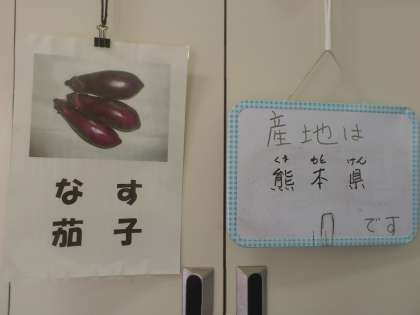 なす
茄子
産地は
くま もと けん
熊本県
です